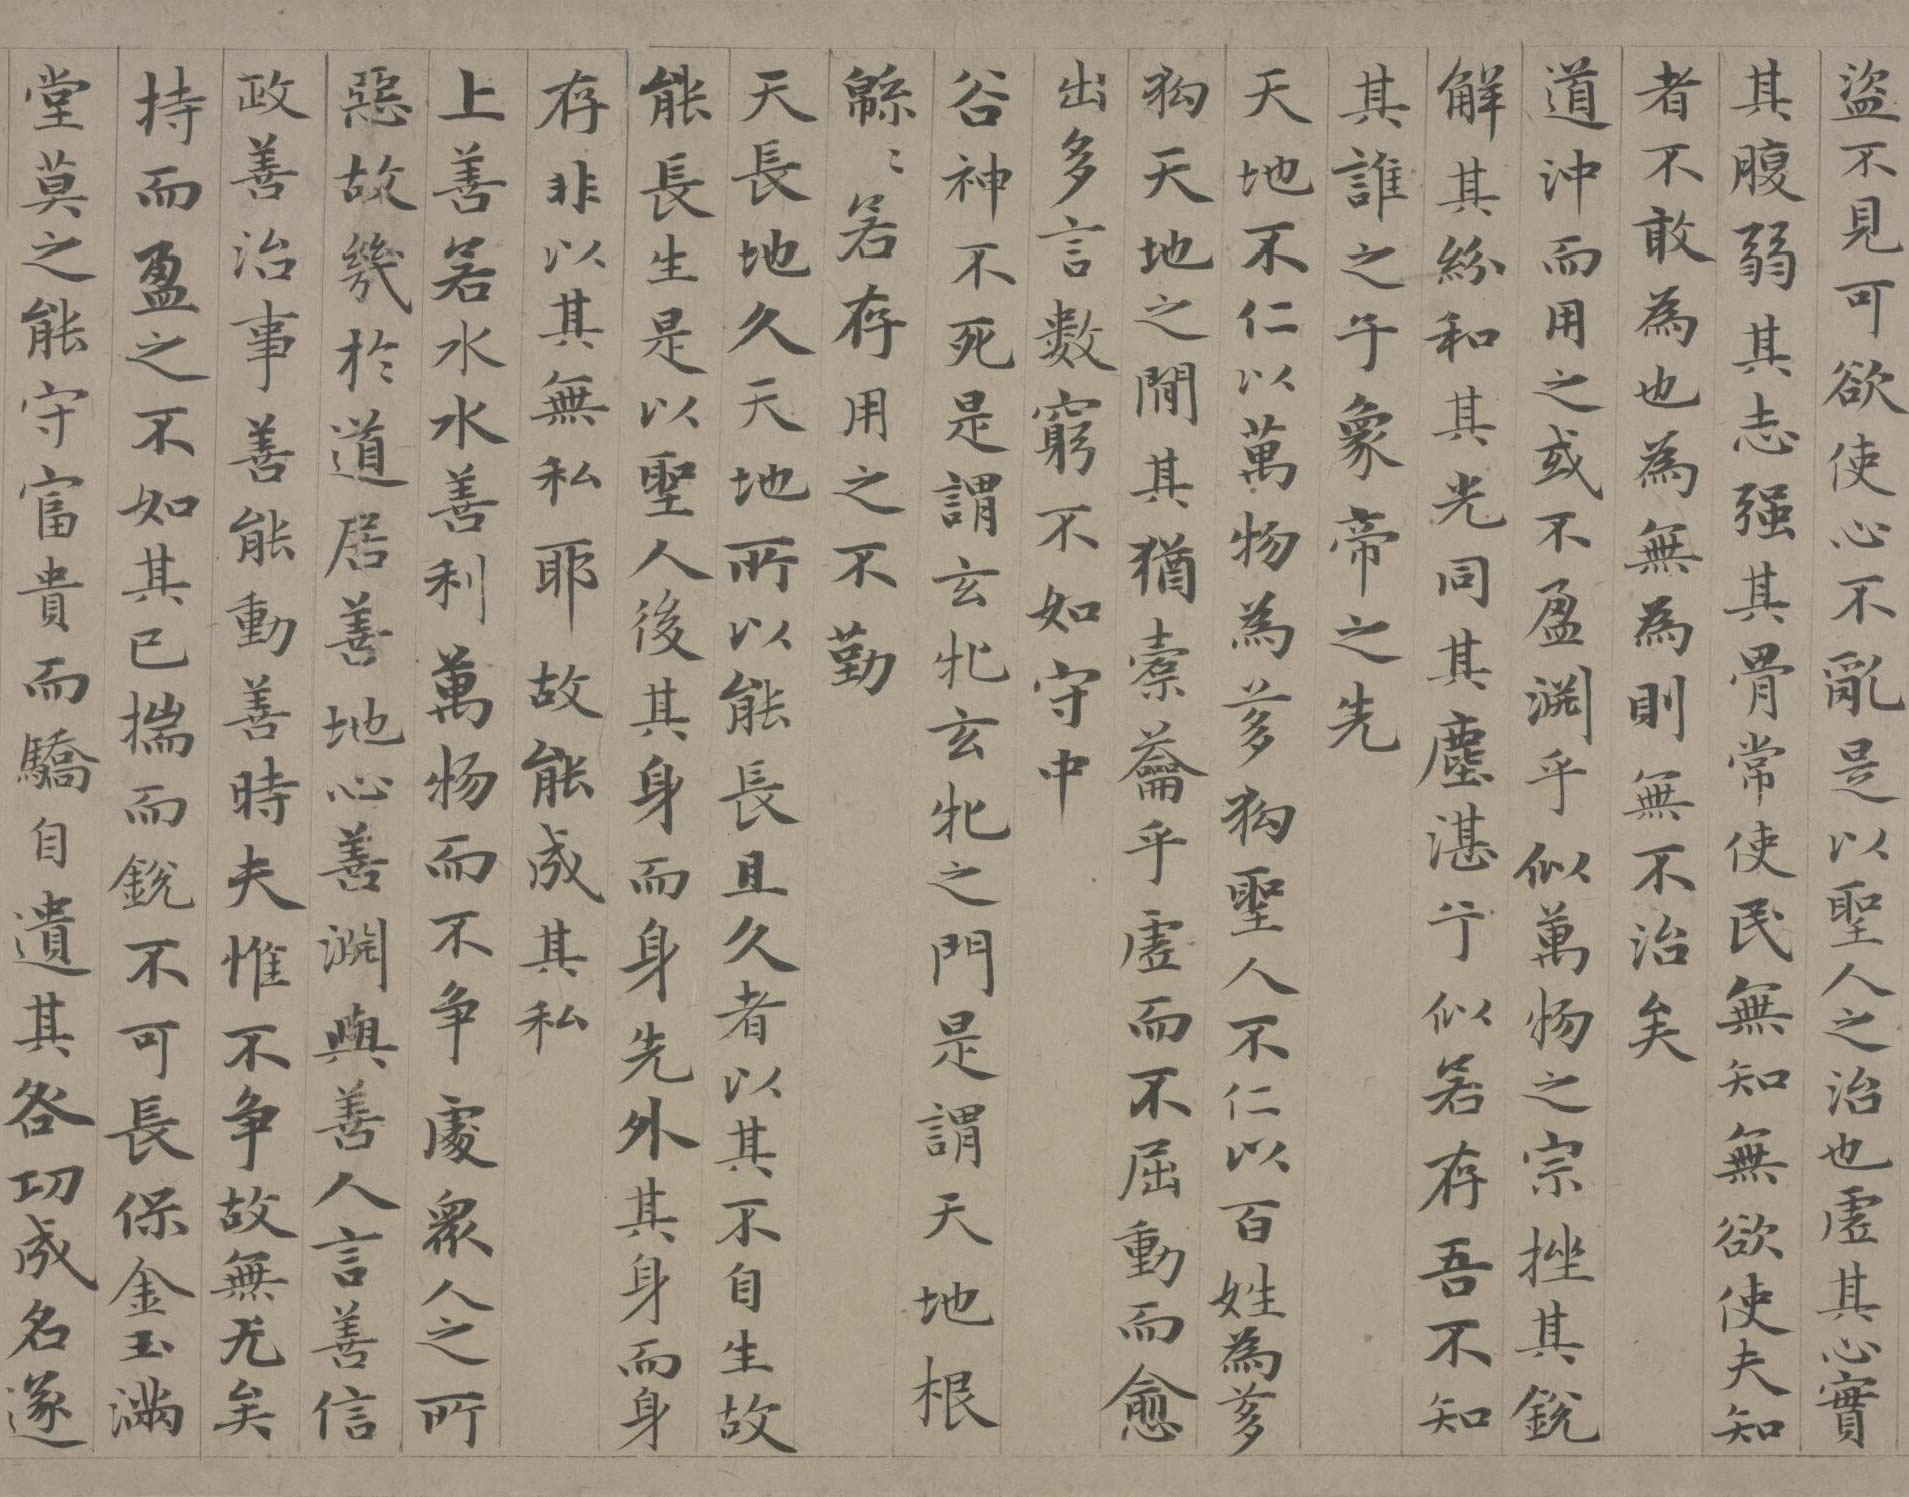 盜不見可欲使心不亂是以聖人之治也虛其心實
其腹弱其志强其骨常使民無知無欲使夫知
者不敢為也為無為則無不治矣
道沖而用之或不盈淵乎似萬物之宗挫其銳
解其紛和其光同其塵湛兮似若存吾不知
其誰之子象帝之先
天地不仁以萬物為芻狗聖人不仁以百姓為芻
狗天地之間其猶橐籥乎虛而不屈動而愈
出多言數窮不如守中
谷神不死是謂玄牝玄牝之門是謂天地根
緜〻若存用之不勤
天長地久天地所以能長且久者以其不自生故
能長生是以聖人後其身而身先外其身而身
存非以其無私耶故能成其私
上善若水水善利萬物而不争處衆人之所
惡故幾於道居善地心善淵與善人言善信
政善治事善能動善時夫惟不争故無尤矣
持而盈之不如其已揣而銳不可長保金玉滿
堂莫之能守富貴而驕自遺其咎功成名遂